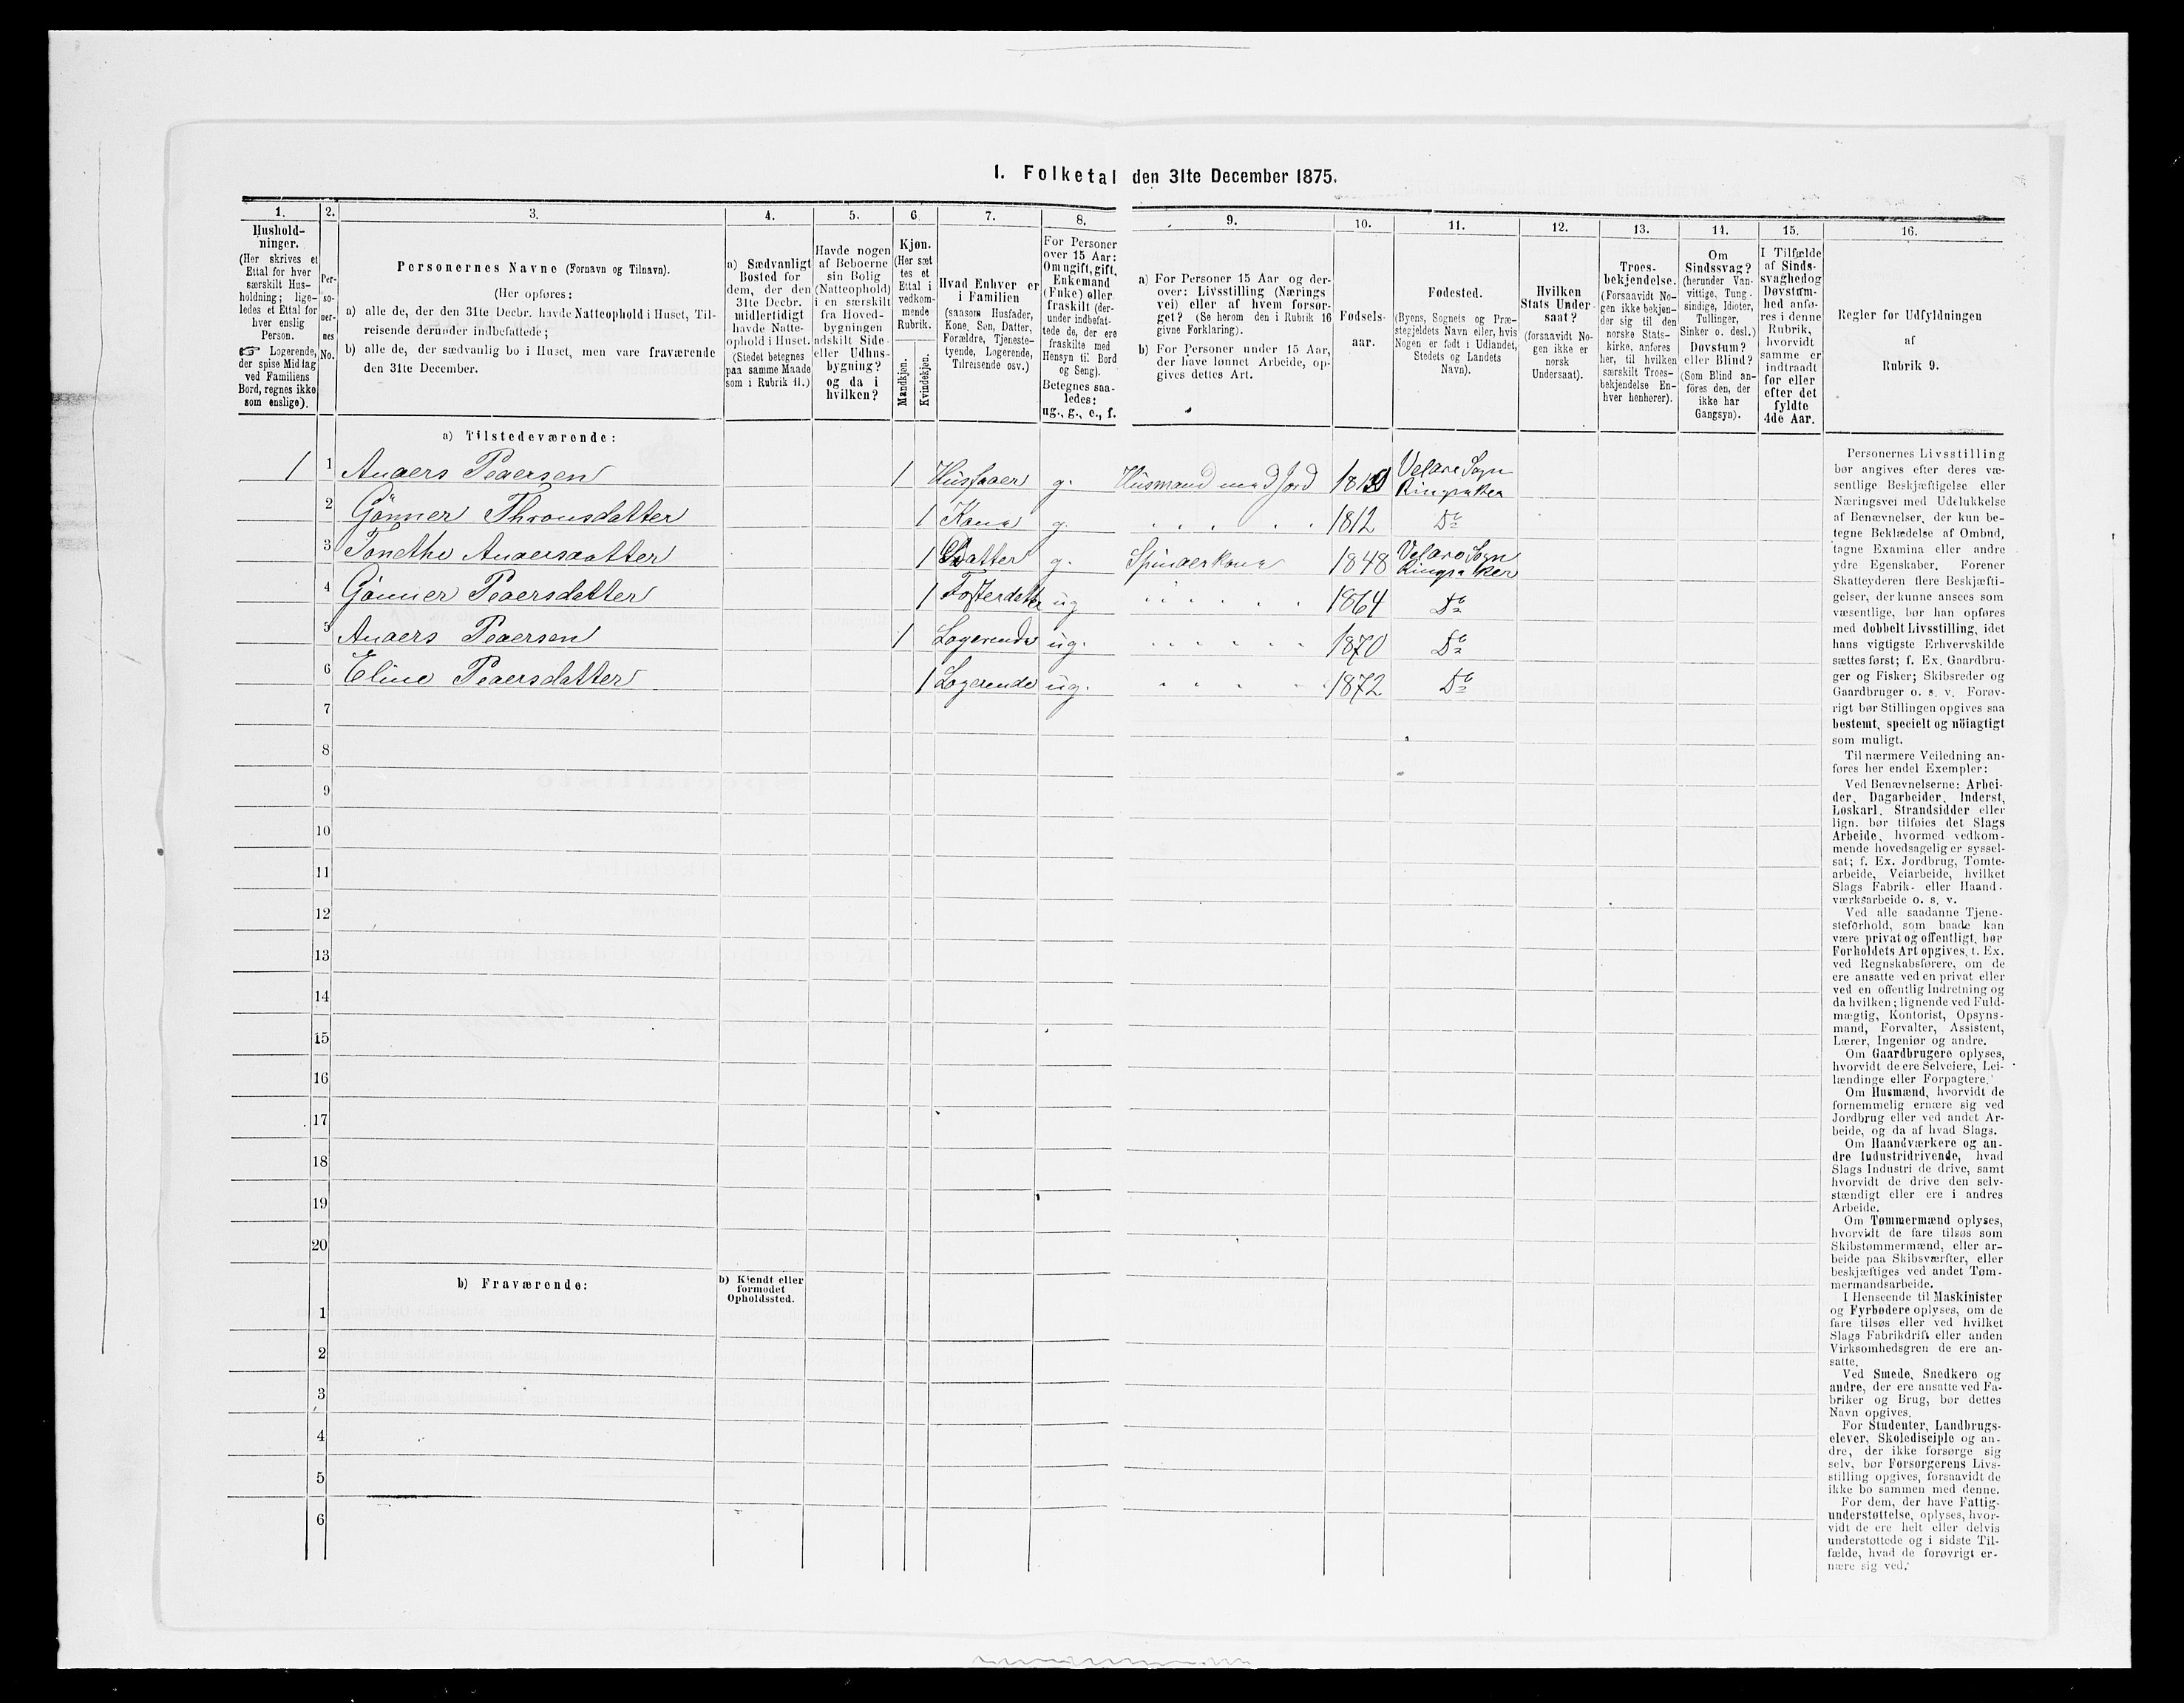 I. Folketal den 31te December 1875.
1.
Hushold-
ninger.
(Her skrives et
Ettal for hver
særskilt Hus-
holdning; lige-
ledes et Ettal for
hver enslig
Person.
☞ Logerende,
der spise Middag
ved Familiens
Bord, regnes ikke
som enslige).
2.
Per-
so-
ner-
nes
No.
3.
Personernes Navne (Fornavn og Tilnavn).
(Her opføres:
a) alle de, der den 31te Decbr. havde Natteophold i Huset, Til-
reisende derunder indbefattede;
b) alle de, der sædvanlig bo i Huset, men vare fraværende
den 31te December.
4.
a) Sædvanligt
Bosted for
dem, der den
31te Decbr.
midlertidigt
havde Natte-
ophold i Huset.
(Stedet betegnes
paa samme Maade
som i Rubrik 11.)
5.
Havde nogen
af Beboerne
sin Bolig
(Natteophold)
i en særskilt
fra Hoved-
bygningen
adskilt Side-
eller Udhus-
bygning?
og da i
hvilken?
6.
Kjøn.
(Her sæt
tes et
Ettal i
vedkom-
mende
Rubrik.
Mandkjøn.
Kvindekjøn.
7.
Hvad Enhver er
i Familien
(saasom Husfader,
Kone, Søn, Datter,
Forældre, Tjeneste-
tyende, Logerende,
Tilreisende osv.)
8.
For Personer
over 15 Aar:
Om ugift, gift,
Enkemand
(Enke) eller
fraskilt (der-
under indbefat-
tede de, der ere
fraskilte med
Hensyn til Bord
og Seng).
Betegnes saa-
ledes:
ug., g., e., f.
9.
a) For Personer 15 Aar og der-
over: Livsstilling (Nærings
vei) eller af hvem forsør-
get? (Se herom den i Rubrik 16
givne Forklaring).
b) For Personer under 15 Aar,
der have lønnet Arbeide, op-
gives dettes Art.
10.
Fødsels-
aar.
11.
Fødested.
(Byens, Sognets og Præ-
stegjeldets Navn eller, hvis
Nogen er født i Udlandet,
Stedets og Landets
Navn).
12.
Hvilken
Stats Under-
saat?
(forsaavidt No-
gen ikke er
norsk
Undersaat).
13.
Troes-
bekjendelse.
(Forsaavidt No-
gen ikke bekjen-
der sig til den
norske Stats-
kirke, anføres
her, til hvilken
særskilt Troes-
bekjendelse En-
hver henhører).
14.
Om
Sindssvag?
(herunder Van-
vittige, Tung-
sindige, Idioter,
Tullinger,
Sinker o. desl.)
Døvstum?
eller Blind?
(Som Blind an-
føres den, der
ikke har
Gangsyn).
15.
I Tilfælde
af Sinds-
svaghed og
Døvstum-
hed anfø-
res i denne
Rubrik,
hvorvidt
samme er
indtraadt
før eller
efter det
fyldte
4de Aar.
16.
Regler for Udfyldningen
af
Rubrik 9.
a) Tilstedeværende:
1 1 Anders Pedersen 1 Husfader g. Husmand med Jord Veldre Sogn Ringsaker
2 Gønner Thronsdatter 1 Kone g. 1812 Do
3 Tonethe Andersdatter 1 Datter g. Spinderkone 1848 Veldre Sogn Ringsaker
4 Gønner Pedersdatter 1 Fosterdatter ug 1864 Do
5 Anders Pedersen 1 Logerende ug. 1870 Do
6 Eline Pedersdatter 1 Logerende ug. 1872 Do
7
8
9
10
11
12
13
14
15
16
17
18
19
20
b) Fraværende:
b) Kjendt eller
formodet
Opholdssted.
1
2
3
4
5
6
Personernes Livsstilling
bør angives efter deres væ-
sentlige Beskjæftigelse eller
Næringsvei med Udelukkelse
af Benævnelser, der kun be-
tegne Beklædelse af Ombud,
tagne Examina eller andre
ydre Egenskaber. Forener
Skatteyderen flere Beskjæfti-
gelser, der kunne ansees som
væsentlige, bør han opføres
med dobbelt Livsstilling, idet
hans vigtigste Erhvervskilde
sættes først; f. Ex. Gaardbru-
ger og Fisker; Skibsreder og
Gaardbruger o. s. v. Forøv-
rigt bør Stillingen opgives saa
bestemt, specielt og nöiagtigt
som muligt.
Til nærmere Veiledning an-
føres her endel Exempler:
Ved Benævnelserne: Arbei-
der, Dagarbeider, Inderst,
Løskarl, Strandsidder eller
lign. bør tilføies det Slags
Arbeide, hvormed vedkom-
mende hovedsagelig er syssel-
sat; f. Ex. Jordbrug, Tomte-
arbeide, Veiarbeide, hvilket
Slags Fabrik- eller Haand-
værksarbeide o. s. v.
Ved alle saadanne Tjene-
steforhold, som baade kan
være privat og offentligt, bør
Forholdets Art opgives, t. Ex.
ved Regnskabsførere, om de
ere ansatte ved en privat eller
ved en offentlig Indretning og
da hvilken; lignende ved Fuld-
mægtig, Kontorist, Opsyns-
mand, Forvalter, Assistent,
Lærer, Ingeniør og andre.
Om Gaardbrugere oplyses,
hvorvidt de ere Selveiere, Lei-
lændinge eller Forpagtere.
Om Husmænd, hvorvidt de
fornemmelig ernære sig ved
Jordbrug eller ved andet Ar-
beide, og da af hvad Slags.
Om Haandværkere og an-
dre Industridrivende, hvad
Slags Industri de drive, samt
hvorvidt de drive den selv-
stændigt eller ere i andres
Arbeide.
Om Tømmermænd oplyses,
hvorvidt de fare tilsøs som
Skibstømmermænd, eller ar-
beide paa Skibsværfter, eller
beskjæftiges ved andet Tøm-
mermandsarbeide.
I Henseende til Maskinister
og Fyrbødere oplyses, om de
fare tilsøs eller ved hvilket
Slags Fabrikdrift eller anden
Virksomhedsgren de ere an-
satte.
Ved Smede, Snedkere og
andre, der ere ansatte ved Fa-
briker og Brug, bør dettes
Navn opgives.
For Studenter, Landbrugs-
elever, Skoledisciple og an-
dre, der ikke forsørge sig
selv, bør Forsørgerens Livs-
stilling opgives, forsaavidt de
ikke bo sammen med denne.
For dem, der have Fattig-
understøttelse, oplyses, hvor-
vidt de ere helt eller delvis
understøttede og i sidste Til-
fælde, hvad de forøvrigt er-
nære sig ved.